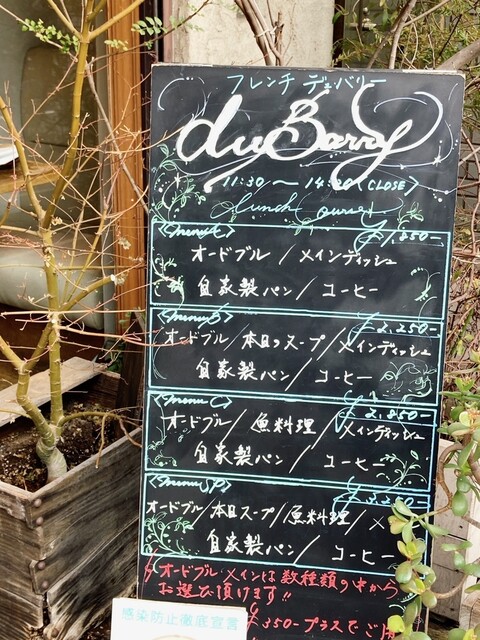 フレンチ デュバリー
duBarry
11:30 〜 14:30 (CLOSE)
Lunch Course
<menu A> ¥1,850-
オードブル / メインディッシュ
自家製パン / コーヒー
<menu B> ¥2,250-
オードブル / 本日のスープ / メインディシュ
自家製パン / コーヒー
<menu C> ¥2,850-
オードブル / 魚料理 / メインディッシュ
自家製パン / コーヒー
<menu SP> ¥3,250-
オードブル / 本日スープ / 魚料理 / メ
自家製パン / コーヒー
オードブル・メインは数種類の中から
お選び頂けます!!
¥350-プラスで
感染防止徹底宣言